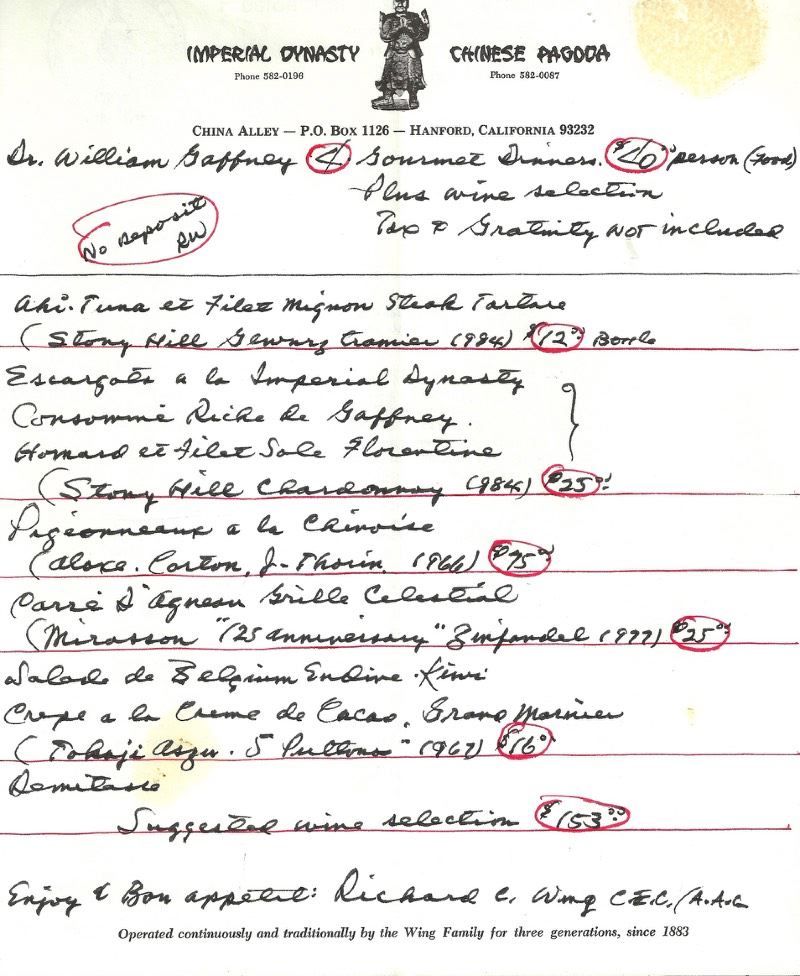 IMPERIAL DYNASTY CHINESE PAGODA
Phone 582-0196 Phone 582-0087
CHINA ALLEY — P.O. BOX 1126 — HANFORD, CALIFORNIA 93232
Dr. William Gaffney 4 Gourmet Dinners. $40.00 person (food)
Plus wine selection
Tax & Gratinity not included
No Deposit
RW
Ahi-Tuna et Filet Mignon Steak Tartare
(Stony Hill Gewurz traminer (1984) $12.00 Bottle
Escargots a la Imperial Dynasty
Consommé Riche de Gaffney.
Homard et Filet Sole Florentine
(Stony Hill Chardonnay (1984) $25.00
Pigeonneaux a la Chinoise
(Aloxe. Corton, J-Thorin. 1966) $75.00
Carré D'agneau Grille Celestial
(Mirasson "125 anniversary" Zinfandel (1977) $25.00
Salade de Belgium Endive - Kiwi
Crepe a la Creme de Cacao, Grand Marnier
(Tokaji Aszu. 5 Puttonos" (1967) $16.00
Demitasse
Suggested wine selection $153.00
Enjoy & Bon appetit: Richard C. Wing C.E.C./A.A.C
Operated continuously and traditionally by the Wing Family for three generations, since 1883